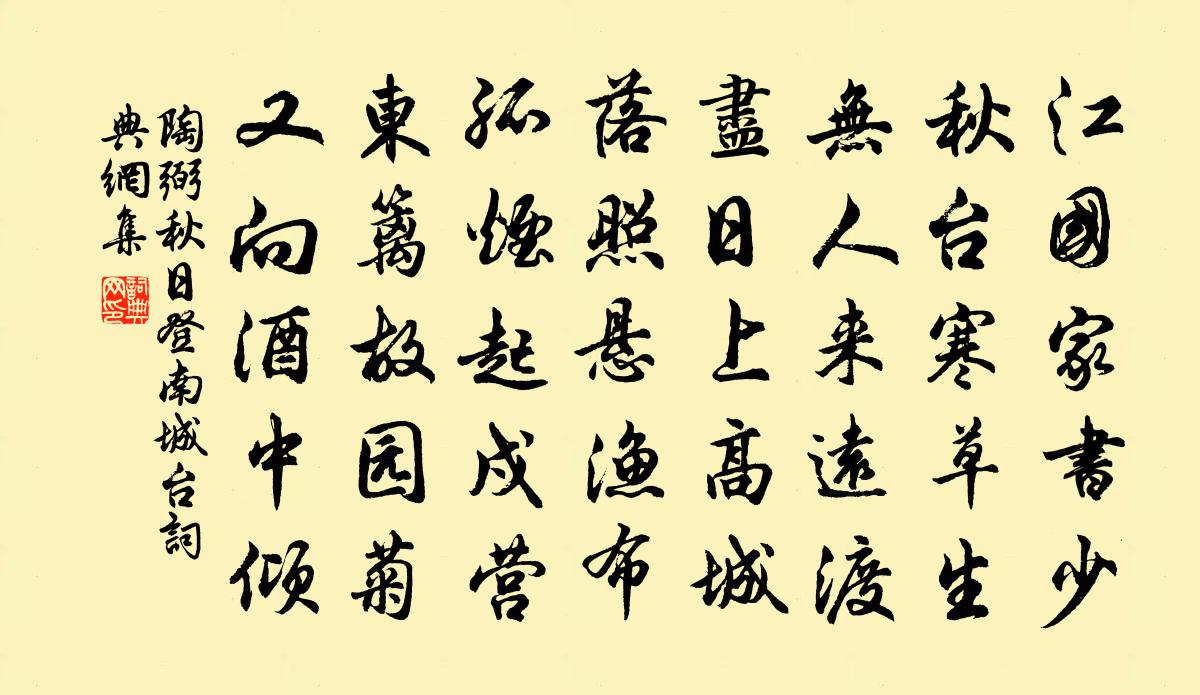 江國家書少
秋台寒草生
無人来遠渡
盡日上高城
落照懸漁布
孤煙起戍营
東籬故园菊
又向酒中倾
陶弼秋日登南城台詞
典網集
詞典
网印